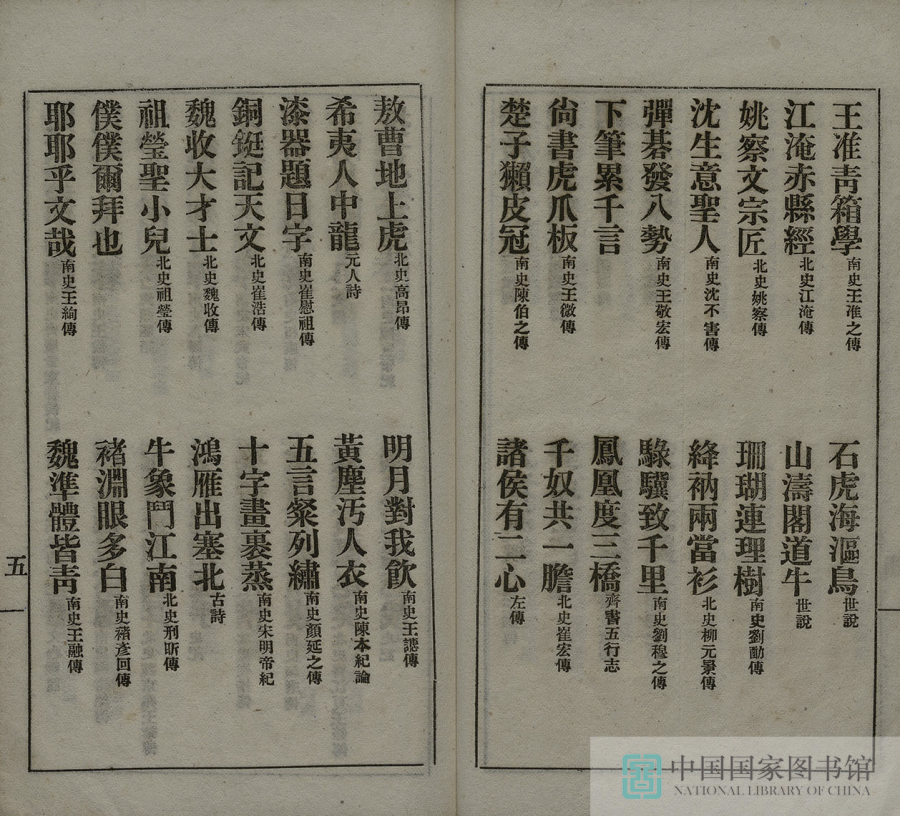 王准靑箱學南史王准之傳　石虎海漚鳥世說
江淹赤縣經北史江淹傳　山濤閣道牛世說
姚察文宗匠北史姚察傳　珊瑚連理樹南史劉勔傳
沈生意聖人南史沈不害傳　絳衲兩當衫北史柳元景傳
彈棊發八勢南史王敬宏傳　騄驥致千里南史劉穆之傳
下筆累千言　鳳凰度三橋齊書五行志
尙書虎爪板南史王微傳　千奴共一膽北史崔宏傳
楚子獺皮冠南史陳伯之傳　諸侯有二心左傳
敖曹地上虎北史高昂傳　明月對我飮南史王譓傳
希夷人中龍元人詩　黃塵汚人衣南史陳本紀論
漆器題日字南史崔慰祖傳　五言粲列繡南史顏延之傳
銅鋌記天文北史崔浩傳　十字畫裹蒸南史宋明帝紀
魏收大才士北史魏收傳　鴻雁出塞北古詩
祖瑩聖小兒北史祖瑩傳　牛象鬥江南北史刑昕傳
僕僕爾拜也　褚淵眼多白南史褚彥回傳
耶耶乎文哉南史王絢傳　魏準體皆靑南史王融傳
五
中国国家图书馆
NATIONAL LIBRARY OF CHINA